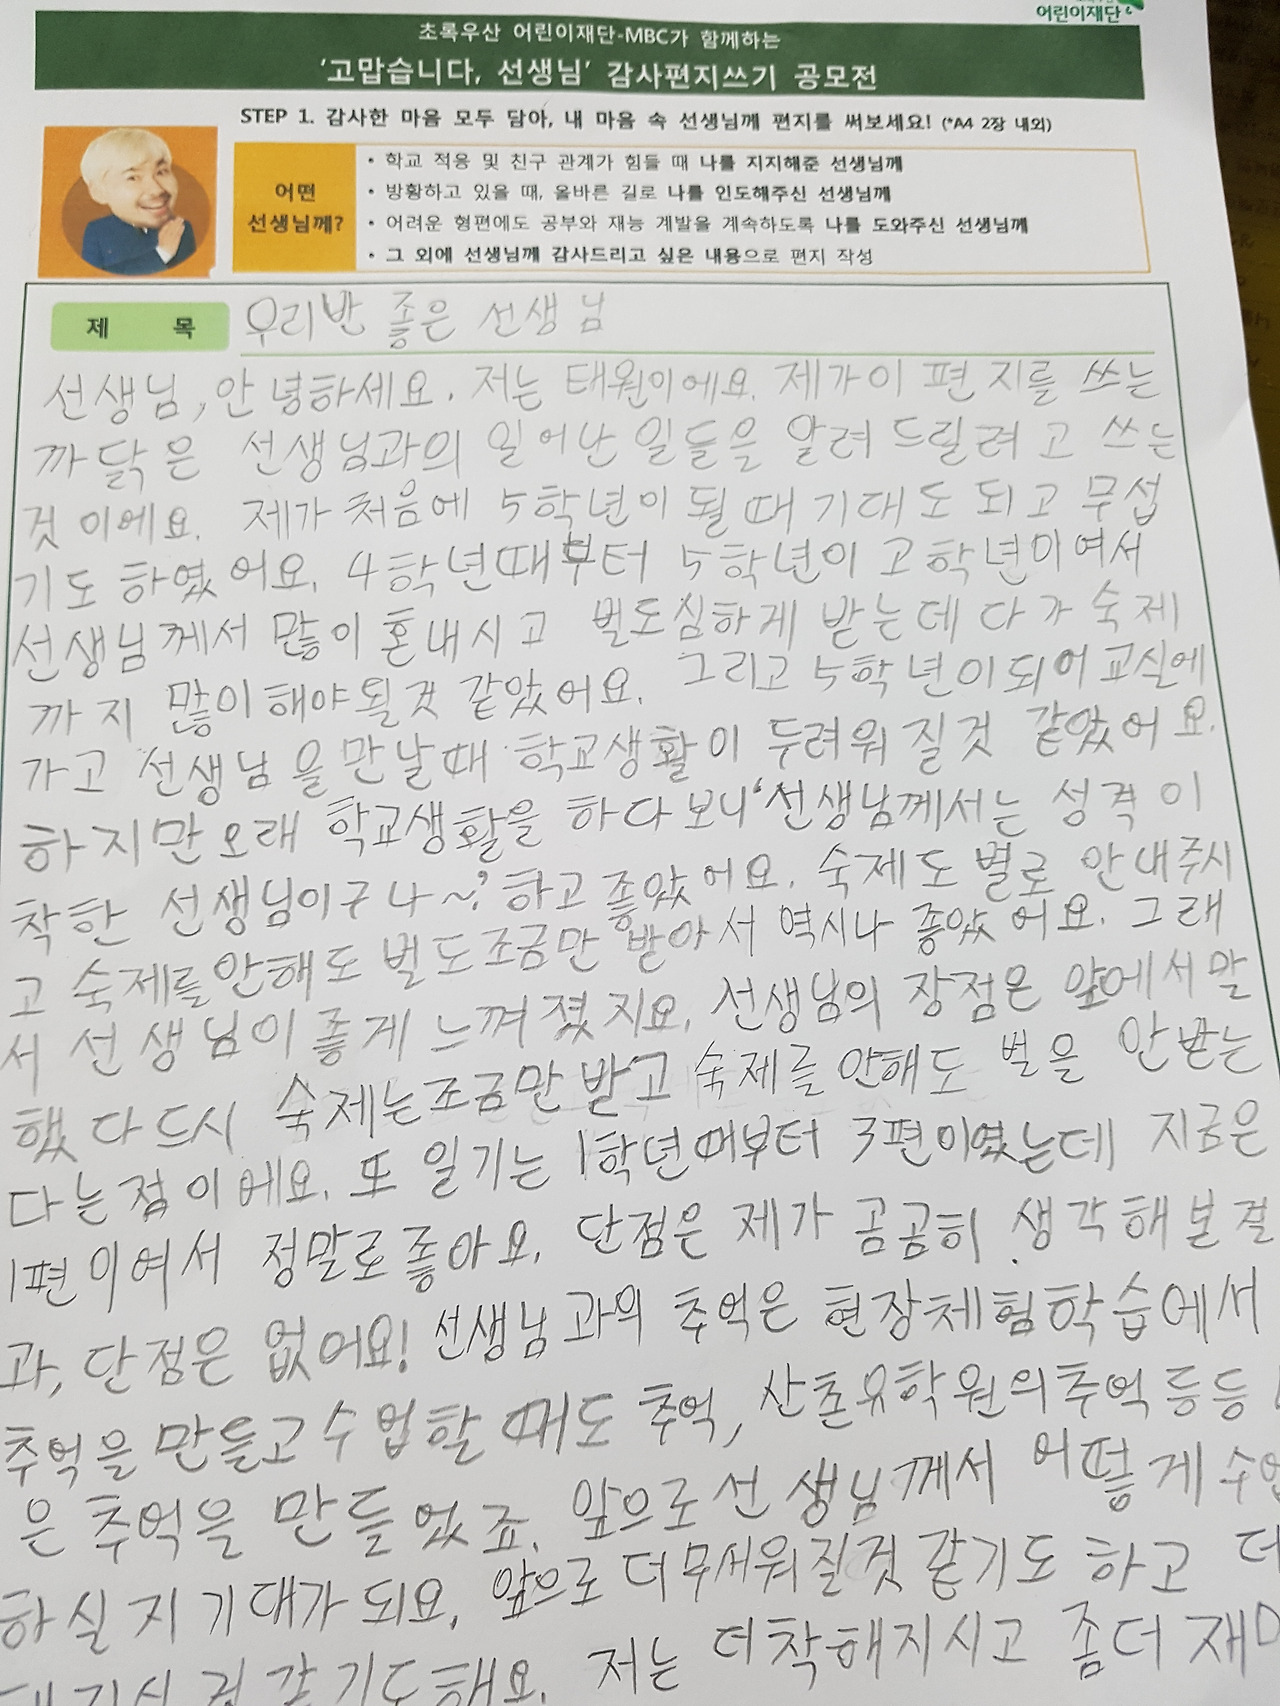 어린이재단
초록우산 어린이재단-MBC가 함께하는
‘고맙습니다, 선생님’ 감사편지쓰기 공모전
STEP 1. 감사한 마음 모두 담아, 내 마음 속 선생님께 편지를 써보세요! (*A4 2장 내외)
어떤
선생님께?
• 학교 적응 및 친구 관계가 힘들 때 나를 지지해준 선생님께
• 방황하고 있을 때, 올바른 길로 나를 인도해주신 선생님께
• 어려운 형편에도 공부와 재능 계발을 계속하도록 나를 도와주신 선생님께
• 그 외에 선생님께 감사드리고 싶은 내용으로 편지 작성
제 목 우리반 좋은 선생님
선생님, 안녕하세요. 저는 태원이에요. 제가 이 편지를 쓰는
까닭은 선생님과의 일어난 일들을 알려드릴려고 쓰는
것이에요. 제가 처음에 5학년이 될때 기대도 되고 무섭
기도 하였어요. 4학년때부터 5학년이 고학년이여서
선생님께서 많이 혼내시고 벌도심하게 받는데다가 숙제
까지 많이해야될것 같았어요. 그리고 5학년이되어 교실에
가고 선생님을 만날때 학교생활이 두려워 질것 같았어요.
하지만 오래 학교생활을 하다보니 ‘선생님께서는 성격이
착한 선생님이구나~.’ 하고 좋았어요. 숙제도 별로 안내주시
고 숙제를안해도 벌도조금만 받아서 역시나 좋았어요. 그래
서 선생님이 좋게 느껴졌지요. 선생님의 장점은 앞에서 말
했다드시 숙제는조금만 받고 숙제를 안해도 벌을 안받는
다는점이에요. 또 일기는 1학년때부터 3편이였는데 지금은
1편이여서 정말로좋아요. 단점은 제가 곰곰히 생각해본결
과, 단점은 없어요! 선생님과의 추억은 현장체험학습에서
추억을 만들고 수업할 때도 추억, 산촌유학원의추억등등
은 추억을 만들었죠. 앞으로 선생님께서 어떻게
하실지 기대가 되요. 앞으로 더무서워질것 같기도 하고 더
같기도해요. 저는 더착해지시고 좀더